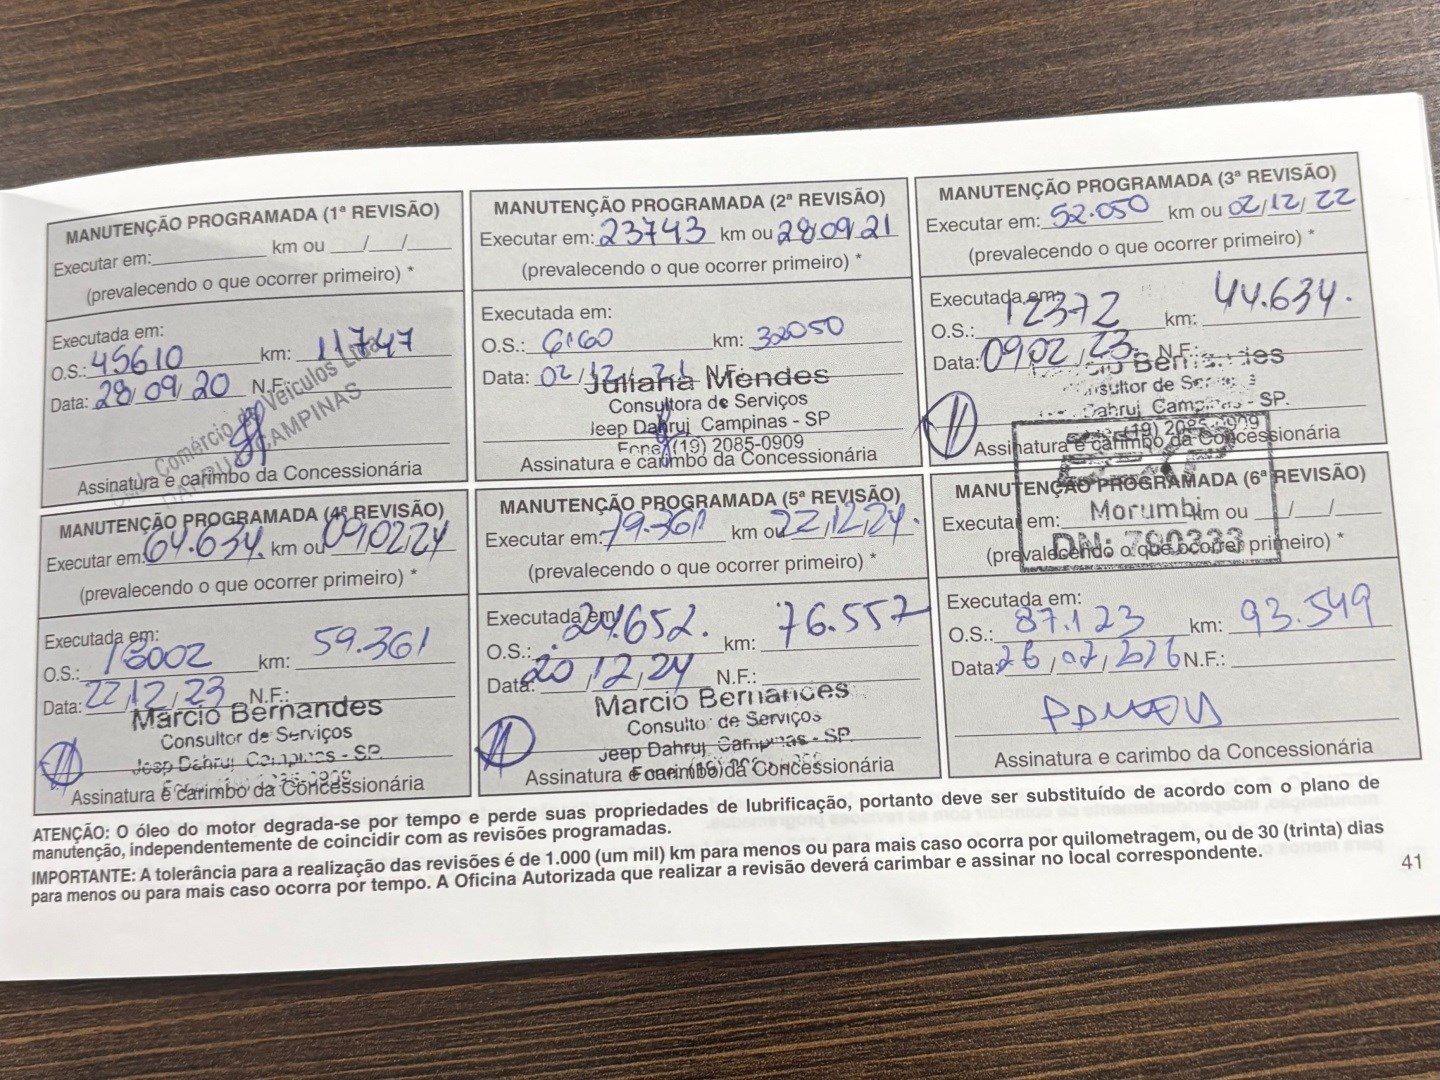 MANUTENÇÃO PROGRAMADA (1ª REVISÃO)
Executar em: km ou / /
(prevalecendo o que ocorrer primeiro) *
Executada em:
O.S.: 45610 km: 11747
Data: 28/09/20 N.F.:
Comércio de Veículos Ltda
CAMPINAS
Assinatura e carimbo da Concessionária
MANUTENÇÃO PROGRAMADA (2ª REVISÃO)
Executar em: 23743 km ou 28/09/21
(prevalecendo o que ocorrer primeiro) *
Executada em:
O.S.: 6160 km: 32050
Data: 02/12/21 N.F.:
Juliana Mendes
Consultora de Serviços
Jeep Dahruj Campinas - SP
Fone (19) 2085-0909
Assinatura e carimbo da Concessionária
MANUTENÇÃO PROGRAMADA (3ª REVISÃO)
Executar em: 52.050 km ou 02/12/22
(prevalecendo o que ocorrer primeiro) *
Executada em:
O.S.: 12372 km: 44.634.
Data: 09/02/23. N.F.:
Bernandes
Consultor de
Dahruj Campinas - SP.
(19) 2085-0909
Assinatura e carimbo da Concessionária
MANUTENÇÃO PROGRAMADA (4ª REVISÃO)
Executar em: 64.634. km ou 09/02/24
(prevalecendo o que ocorrer primeiro) *
Executada em:
O.S.: 18002 km: 59.361
Data: 22/12/23 N.F.:
Marcio Bernandes
Consultor de Serviços
Jeep Dahruj Campinas - SP.
Assinatura e carimbo da Concessionária
MANUTENÇÃO PROGRAMADA (5ª REVISÃO)
Executar em: 79.361 km ou 22/12/24.
(prevalecendo o que ocorrer primeiro) *
Executada em:
O.S.: 24.652. km: 76.557
Data: 20/12/24 N.F.:
Marcio Bernandes
Consultor de Serviços
Jeep Dahruj Campinas - SP.
Assinatura e carimbo da Concessionária
MANUTENÇÃO PROGRAMADA (6ª REVISÃO)
Executar em: km ou / /
Morumbi
DN: 780333
(prevalecendo o que ocorrer primeiro) *
Executada em:
O.S.: 87.123 km: 93.549
Data: 26/02/2026 N.F.:
Assinatura e carimbo da Concessionária
ATENÇÃO: O óleo do motor degrada-se por tempo e perde suas propriedades de lubrificação, portanto deve ser substituído de acordo com o plano de
manutenção, independentemente de coincidir com as revisões programadas.
IMPORTANTE: A tolerância para a realização das revisões é de 1.000 (um mil) km para menos ou para mais caso ocorra por quilometragem, ou de 30 (trinta) dias
para menos ou para mais caso ocorra por tempo. A Oficina Autorizada que realizar a revisão deverá carimbar e assinar no local correspondente.
41